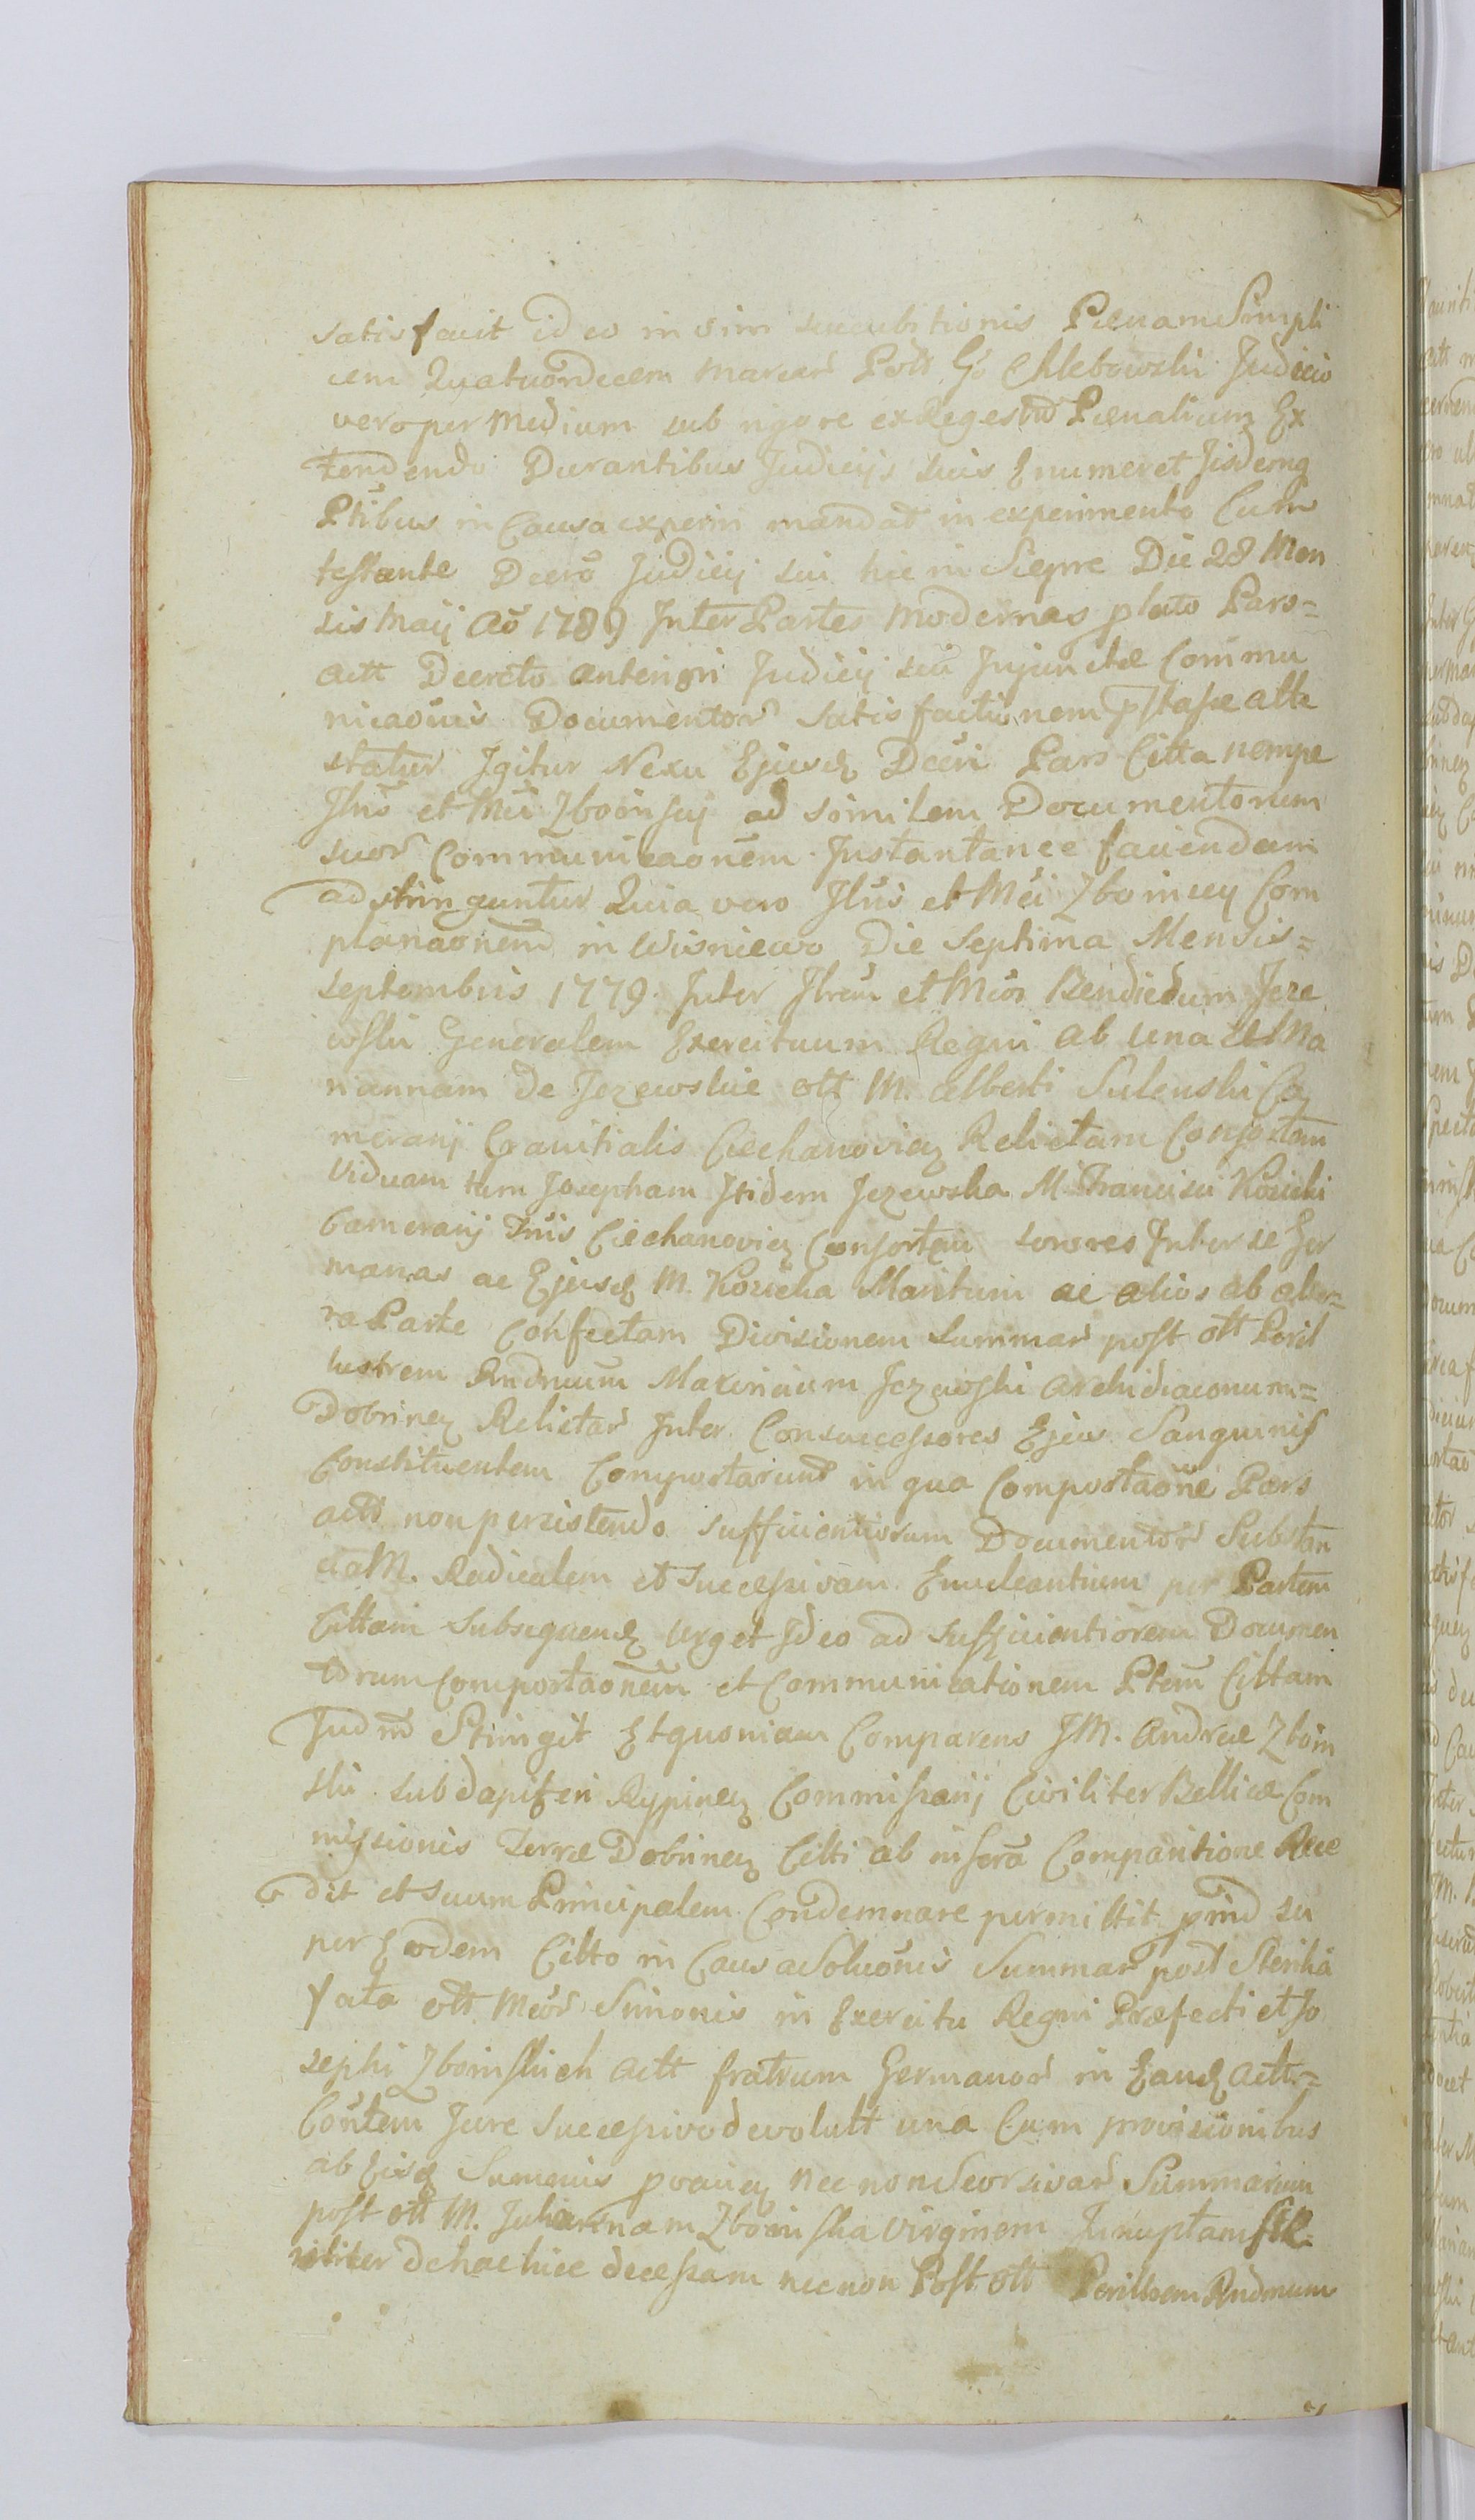 satisfacit ideo in vim succubitionis Pœnam Simpli
cem Quatuordecem Marcar Perll Go Chlebowski Judicio
vero per Medium sub rigore ex Regestro Pœnalium Ex
tendendo Durantibus Judicijs suis Enumeret Jisdemq
Ptibus in Causa experiri mandat in experimento Cum
testante Decro Judicij sui hic in Siepre Die 28 Men
sis Maij Ao 1789 Inter Partes Modernas plato Pars=
actt Decreto anteriori Judicij sui Injunctæ Commu
nicaonis Documentor Satisfactionem pstasse atte
statur Igitur Nexu Ejusd Decri Pars Citta nempe
Jllris et Mci Zboinscij ad similem Documentorum
suor Communicaonem Instantanee faciendam
adstringuntur Quia vero Jllris et Mci Zboinscij Com
planaonem in Wisniewo Die Septima Mensis=
septembris 1779. Inter Jllrem et Mcos Benedictum Jeze
wski Generalem Exercituum Regni ab una et Ma
riannam de Jezewskie ott M. Alberti Sulenski Ca
merarij Granitialis Ciechanovien Relictam Consortem
Viduam tum Josepham Itidem Jezewska M. Francisci Kozicki
Camerarij Trris Ciechanovien Consortem sorores Inter se Ger
manas ac Ejusd M. Kozicka Maritum ac alios ab alte=
ra Parte Confectam Divisionem Summar post ott Peril
lustrem Rndmum Maximum Jezewski Archidiaconum=
Dobrinen Relictar Inter Consuccessores Ejus Sanguinis
Constituentem Comportarunt in qua Comportaone Pars
actt non persistendo sufficientiorum Documentor Substan
ciaM. Radicalem et Successivam Enucleantium per Partem
Cittam Subsequend urget Ideo ad sufficientiorem Documen
torum Comportaonem et Communicationem Ptem Cittam
Judm Stringit Et quoniam Comparens JM. Andreæ Zboin
ski subdapiferi Rypinen Commissarij Civiliter Bellicæ Com
missionis Terræ Dobrinen Citti ab inserta Comparitione Rece
dit et suum Principalem Condemnare permittit prind su
per Eodem Citto in Causa Soluonis Summar post Sterilia
fata ott Mcor Simonis in Exercitu Regni Præfecti et Jo
sephi Zboinskich actt fratrum Germanor in Eand Actt=
Contem Jure Successivo devolutt una Cum provisionibus
ab Eisd Summis proven nec non Seorsivar Summarum
post ott M. Juliannam Zboinska Virginem Innuptam ste-
riliter de hac luce decessam nec non Post ott Perillrem Rndmum